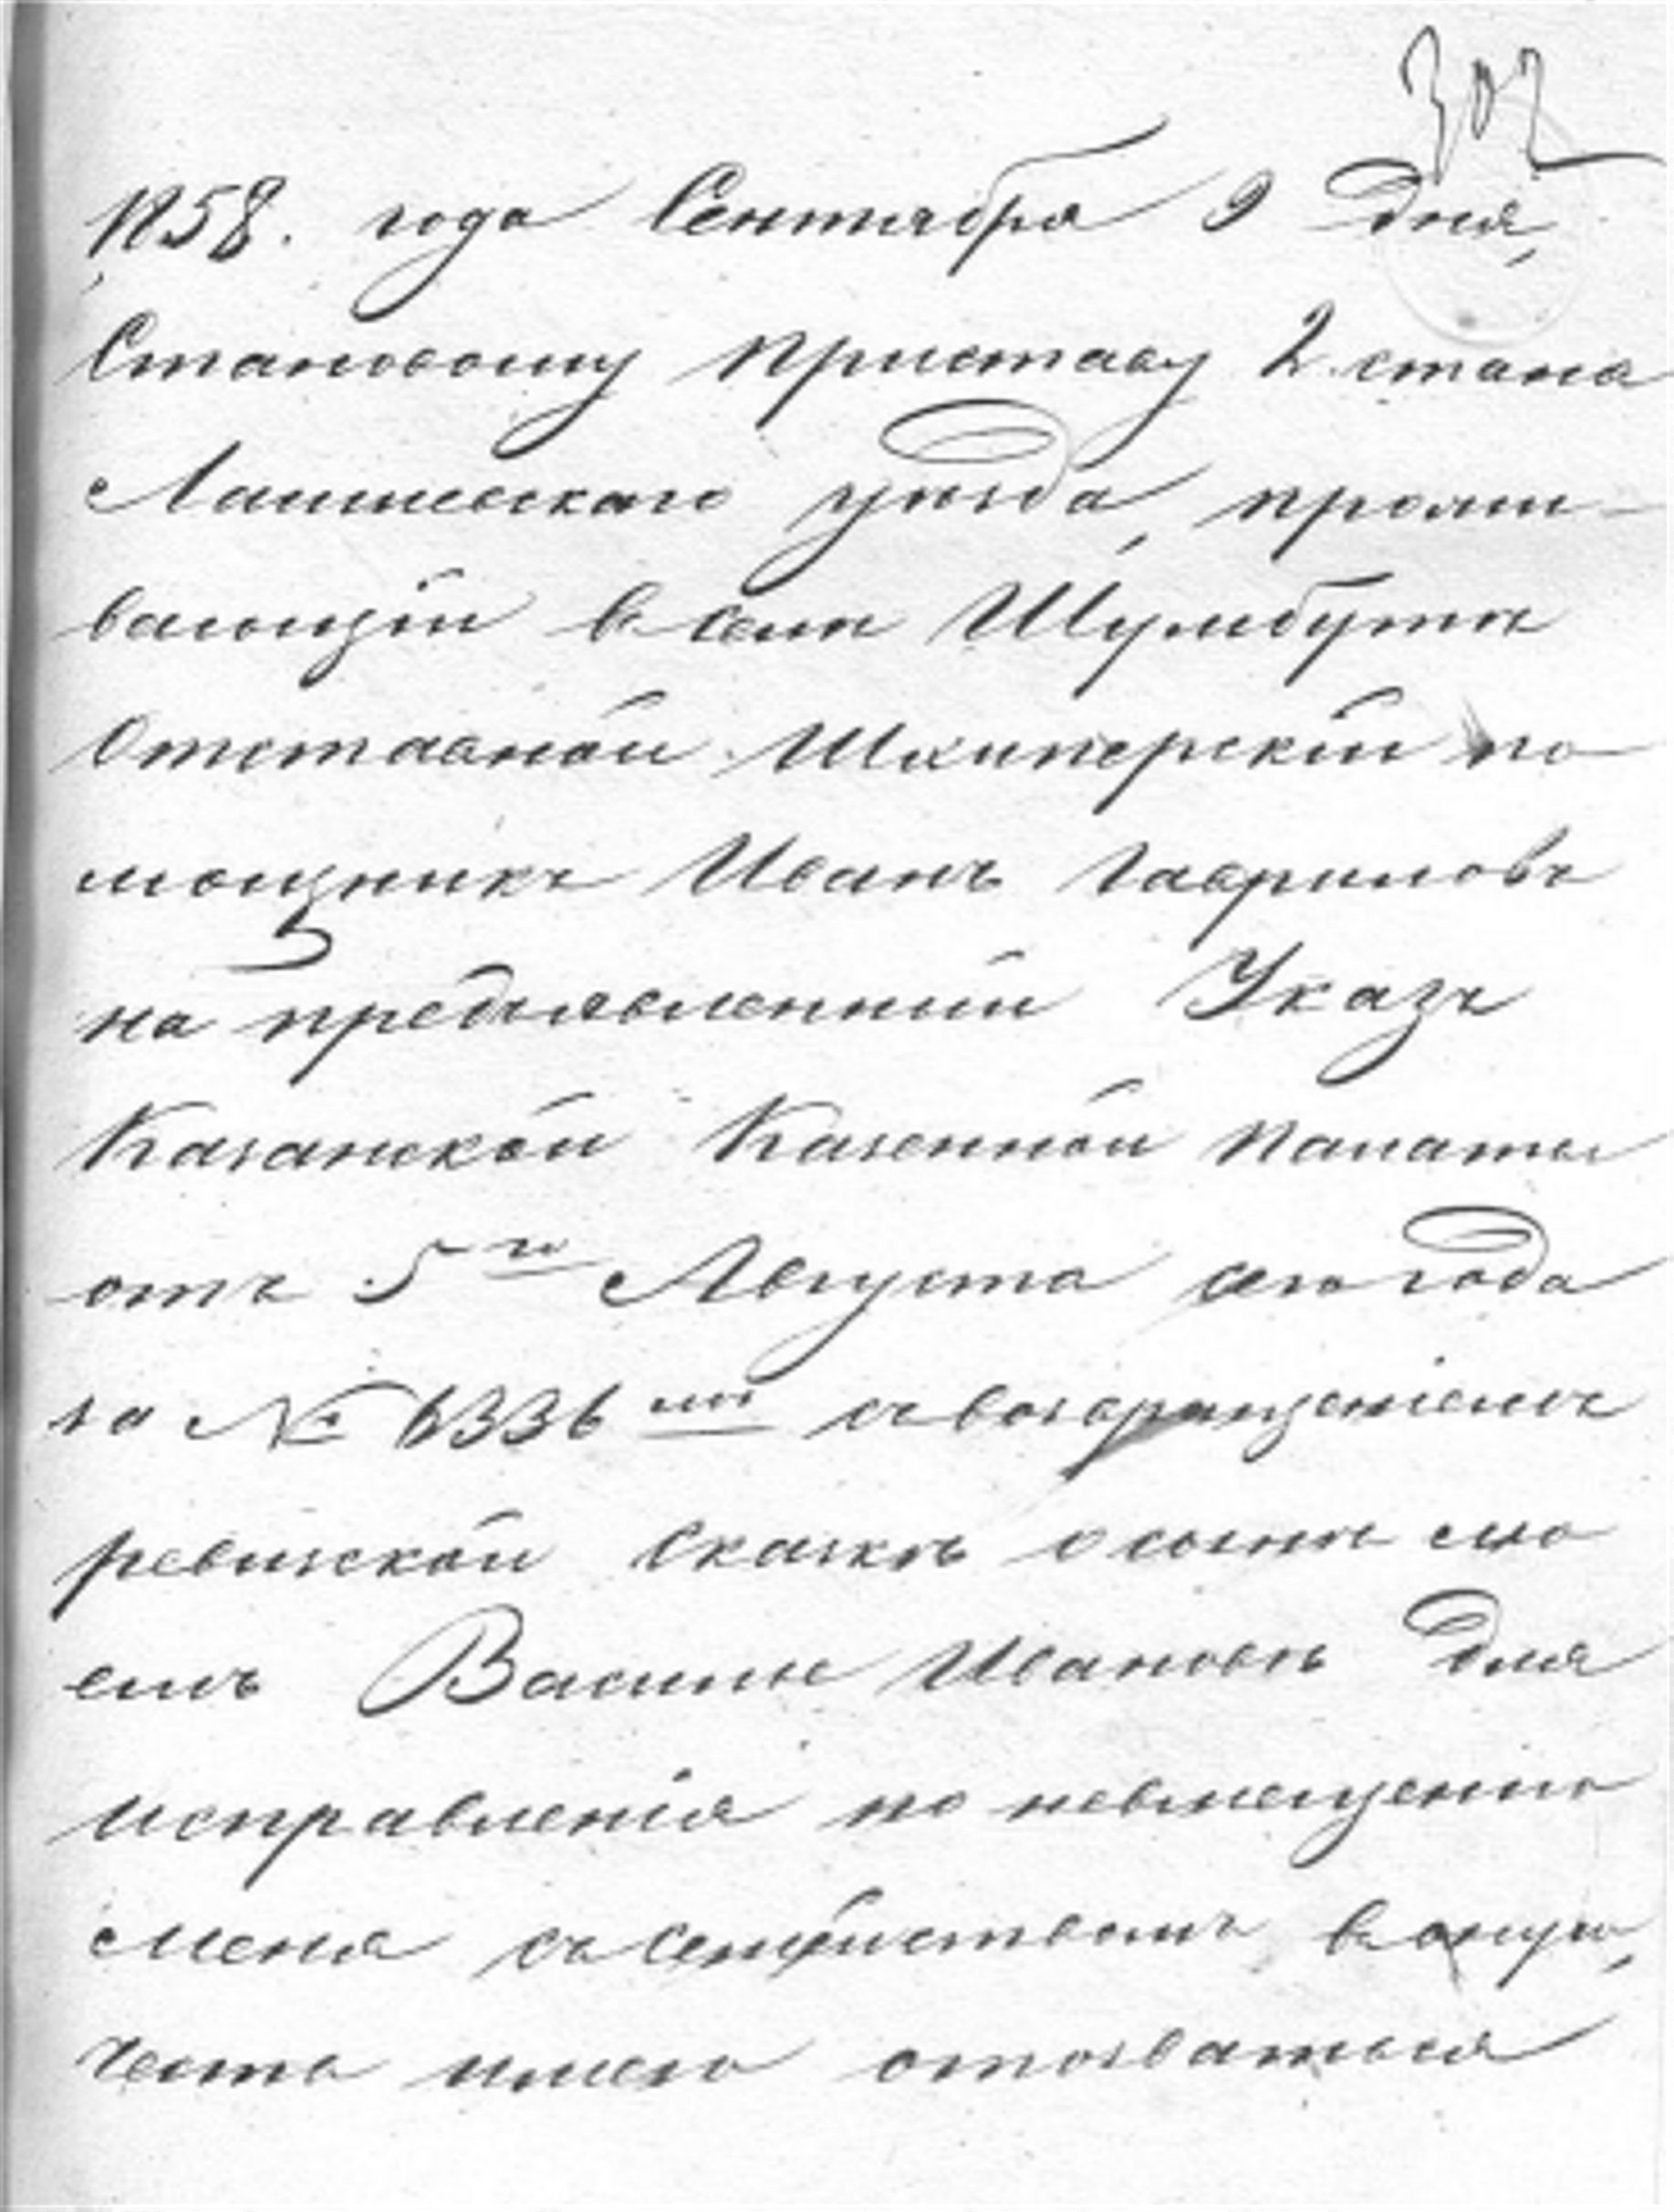 302
1858. года Сентября 9 дня,
Становому Приставу 2 стана
Лаишевскаго уѣзда, прожи-
вающій в селѣ Шумбутѣ
Отставной Шхиперскій по
мощникъ Иванъ Гавриловъ
на предъявленный Указъ
Казанской Казенной Палаты
отъ 5го Августа сего года
за № 6336мъ съ возвращеніемъ
ревизской Сказкѣ о сынѣ мо
емъ Василье Ивановѣ для
исправленія по невмещению
меня съ Семѣйствомъ в оную,
честь имею отозваться